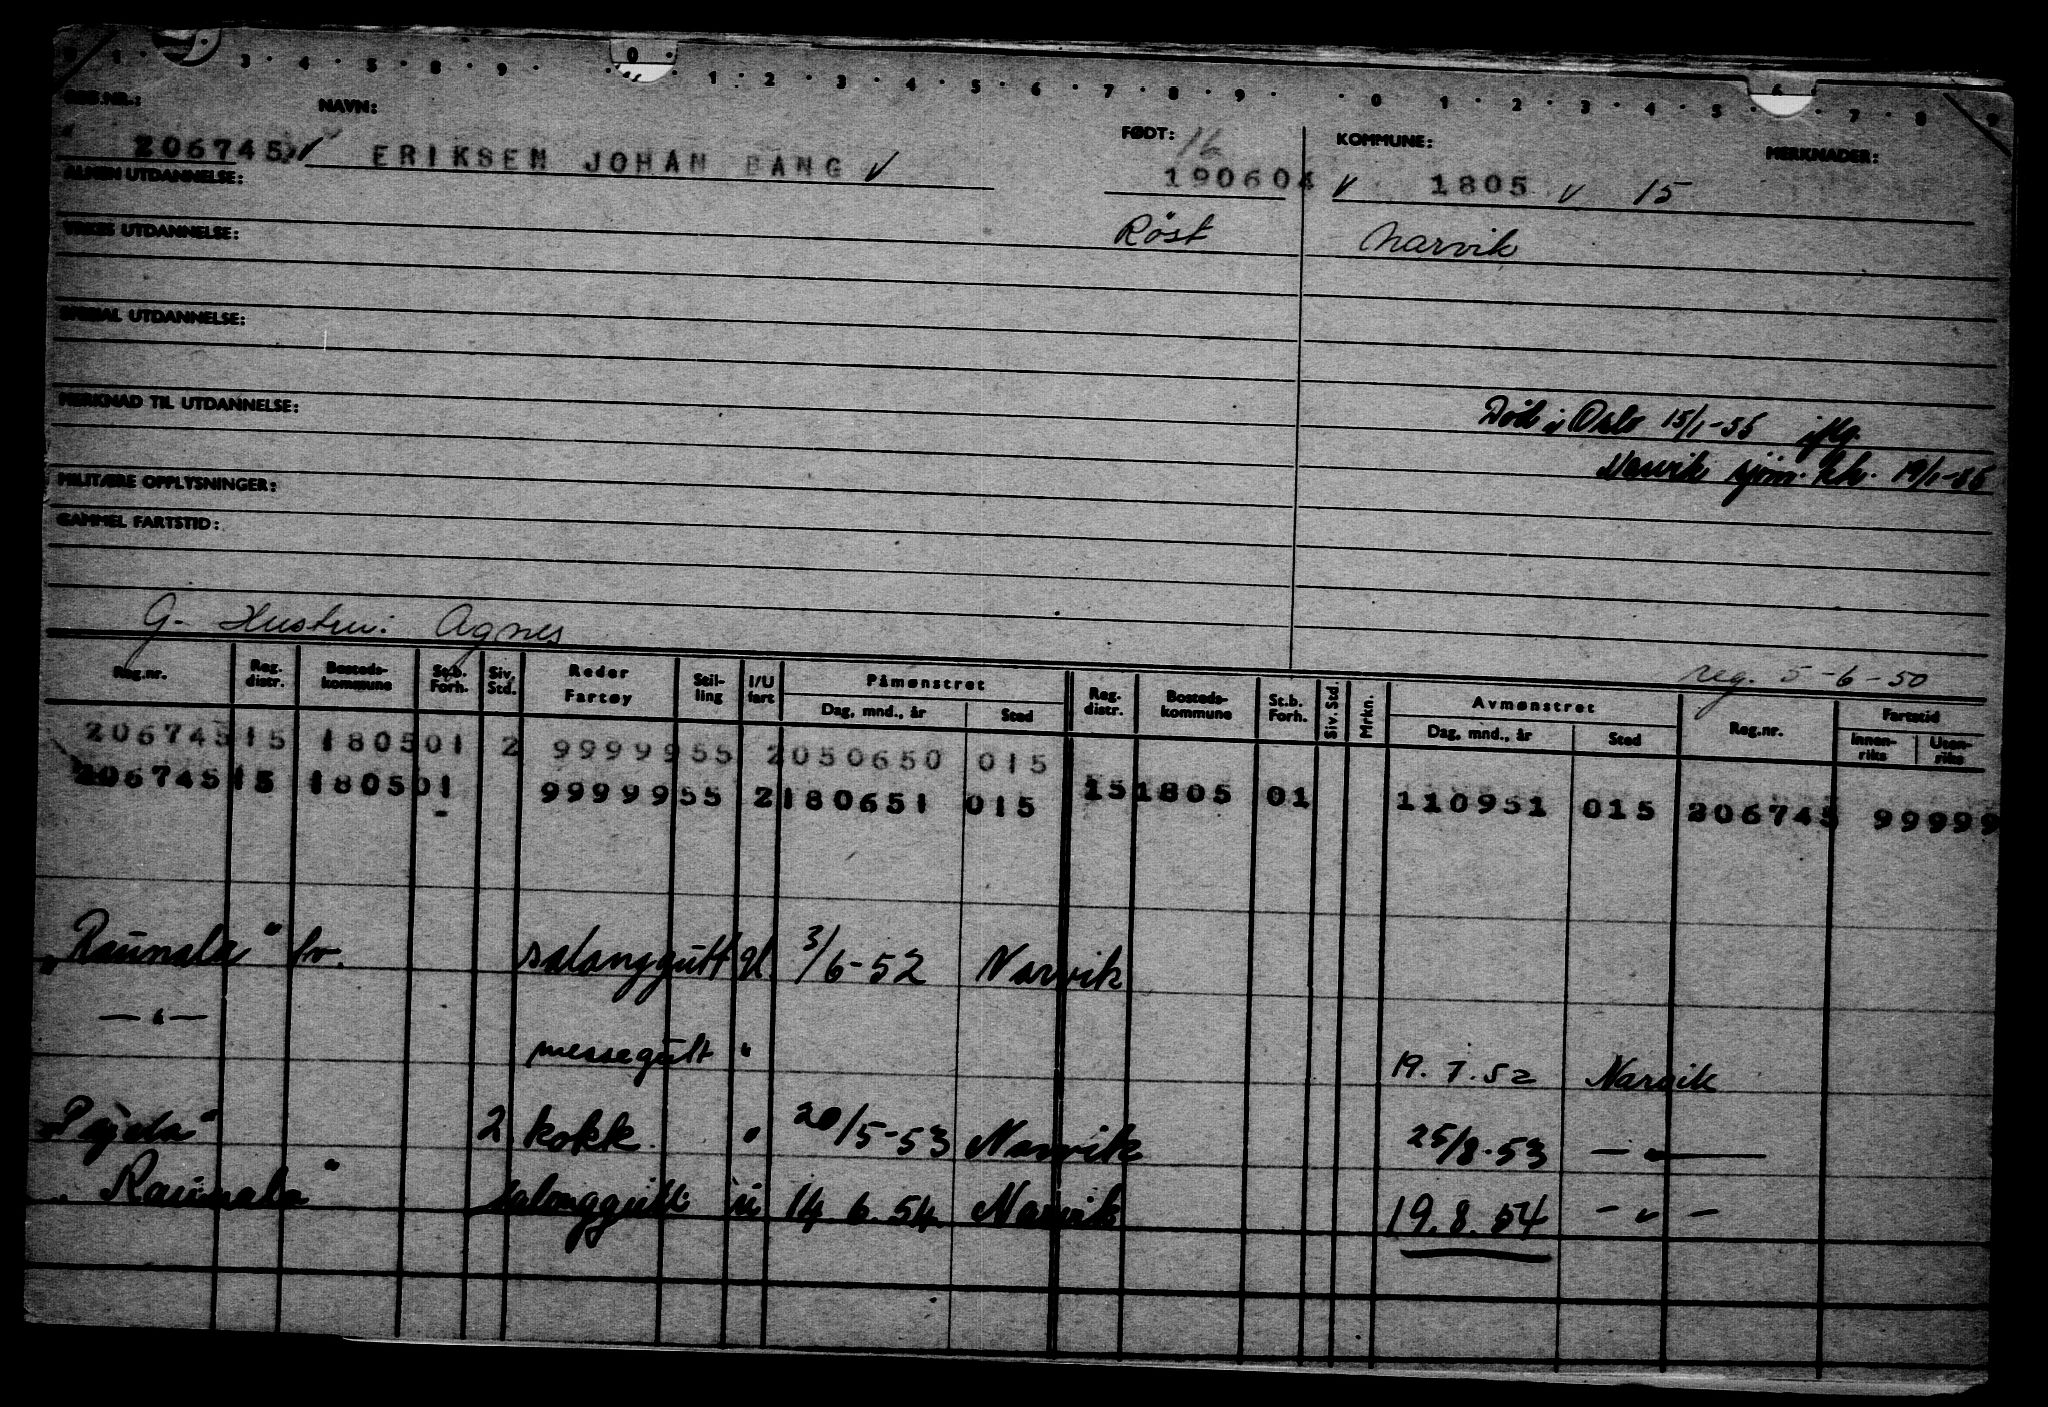 REG.NR.: NAVN: FØDT: KOMMUNE: MERKNADER:
16
206745 ERIKSEN JOHAN BANG 190604 1805 15
ALMEN UTDANNELSE:
Röst Narvik
YRKES UTDANNELSE:
SPESIAL UTDANNELSE:
MERKNAD TIL UTDANNELSE:
Död i Oslo 15/1-56 iflg.
Narvik sjöm. kh. 19/1-56
MILITÆRE OPPLYSNINGER:
GAMMEL FARTSTID:
G. Hustru: Agnes
reg. 5-6-50
Reg.nr. Reg. distr. Bosteds-kommune St.b. Forh. Siv. Std. Reder Fartøy Stil-ling I/U fart Påmønstret Dag, mnd., år Sted Reg. distr. Bosteds-kommune St.b. Forh. Siv. Std. Mrkn. Avmønstret Dag, mnd., år Sted Reg.nr. Fartstid Innen-riks Uten-riks
206745 15 1805 01 2 99999 55 2 050650 015
206745 15 1805 01 99999 55 2 180651 015 15 1805 01 110951 015 206745 99999
"Raunala" sv. salonggutt U. 3/6-52 Narvik
—"— messegutt " 19.7.52 Narvik
"Pajala" 2. kokk " 20/5-53 Narvik 25/8-53 —"—
"Raunala" salonggutt u 14.6.54 Narvik 19.8.54 —"—